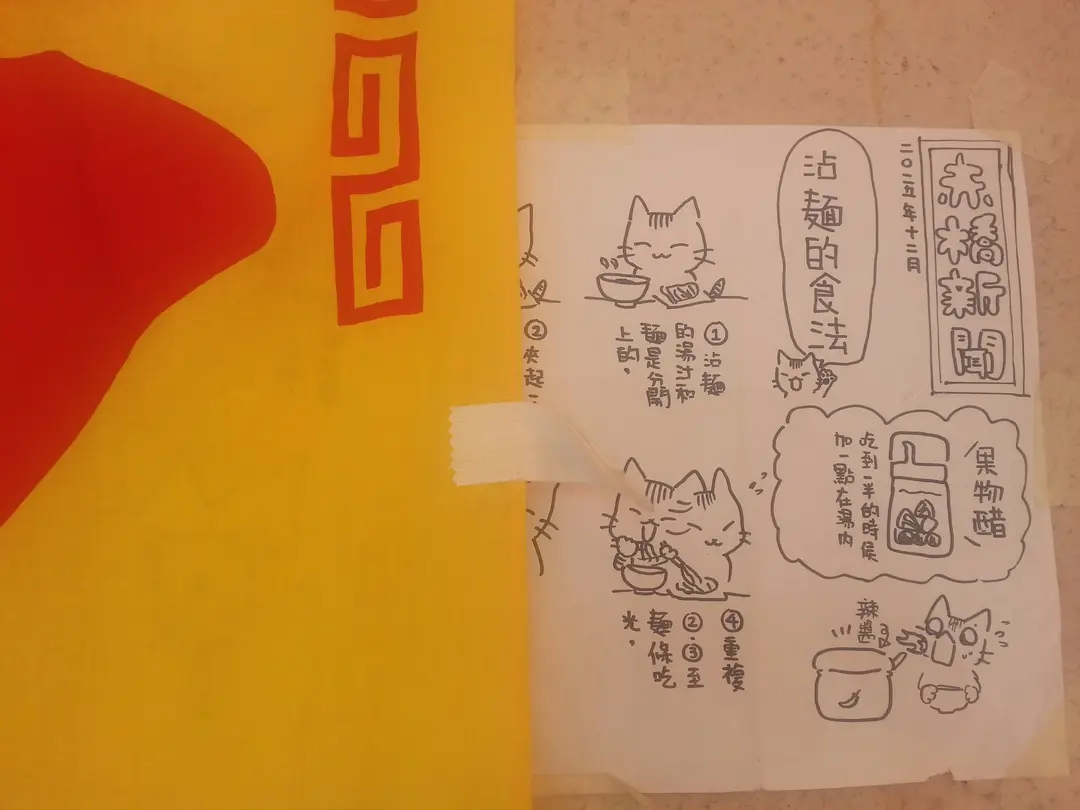 赤橋新聞
二〇二五年十二月
沾麵的食法
①沾麵
的湯汁和
麵是分開
上的。
②夾起
果物醋
吃到一半的時候
加一點在湯內
④重複
②.③至
麵條吃
光。
辣醬